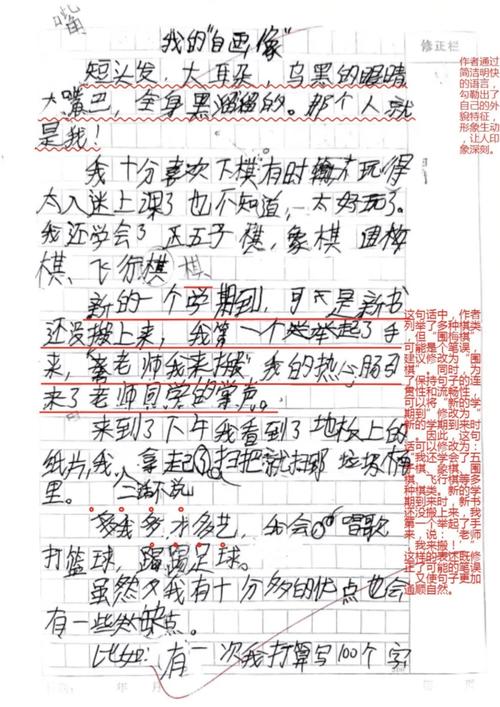 嘴
我的"自画像"
修正栏
短头发，大耳朵，乌黑的眼睛
大嘴巴，全身黑溜溜的。那个人就
是我！
我十分喜欢下棋有时候玩得
太入迷上课了也不知道，太好玩了。
我还学会了五子棋，象棋 围梅
棋、飞行棋 棋
新的一个学期到，可是新书
还没搬上来，我第一个举起了手
来，"老师我来搬"我的热心肠引
来了老师同学的掌声。
来到了下午我看到了地板上的
纸片我 拿起扫把就扫那 垃圾桶
里。 二话不说
我多才多艺，我会 唱歌
打篮球，踢足球。
虽然我有十分多的优点也会
有一些缺点。
比如：有一次我打算写100个字
年 月
作者通过
简洁明快
的语言，
勾勒出了
自己的外
貌特征，
形象生动
，让人印
象深刻。
这句话中，作者
列举了多种棋类
，但"围梅棋"
可能是个笔误，
建议修改为"围
棋"。同时，为
了保持句子的连
贯性和流畅性，
可以将"新的一
学期到"修改为"
新的学期到来时
"。因此，这句
话可以修改为：
"我还学会了五
子棋、象棋、围
棋、飞行棋等多
种棋类。新的学
期到来时，新书
还没搬上来，我
第一个举起了手
来，说："老师
，我来搬！""
这样的表述既修
正了可能的笔误
，又使句子更加
通顺自然。